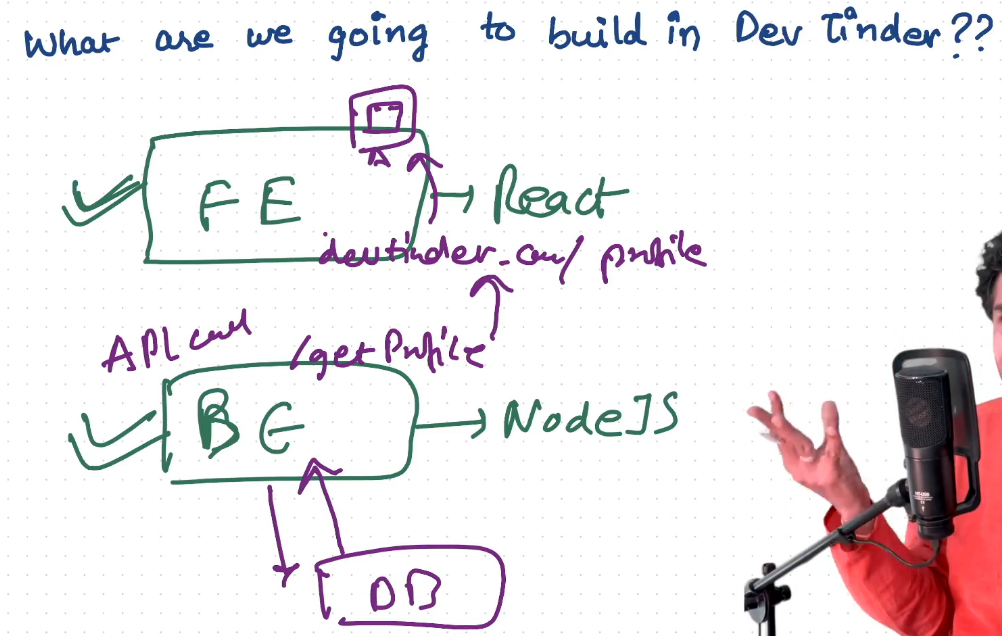 What are we going to build in Dev Tinder??
FE → React
devtinder.com/profile
API call /getProfile
BE → NodeJS
DB